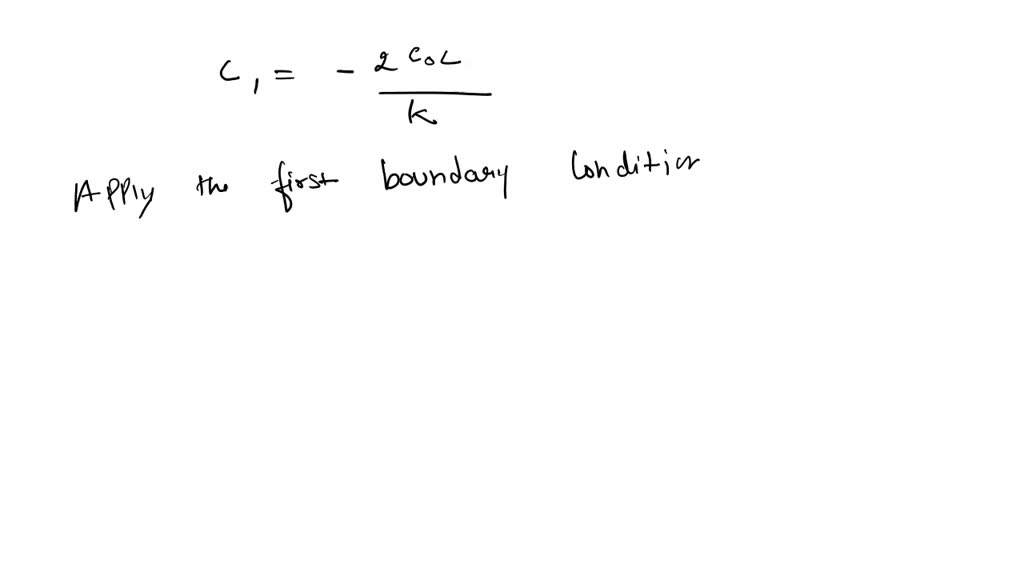 C₁ = - 2 C₀ L / k
Apply the first boundary Condition